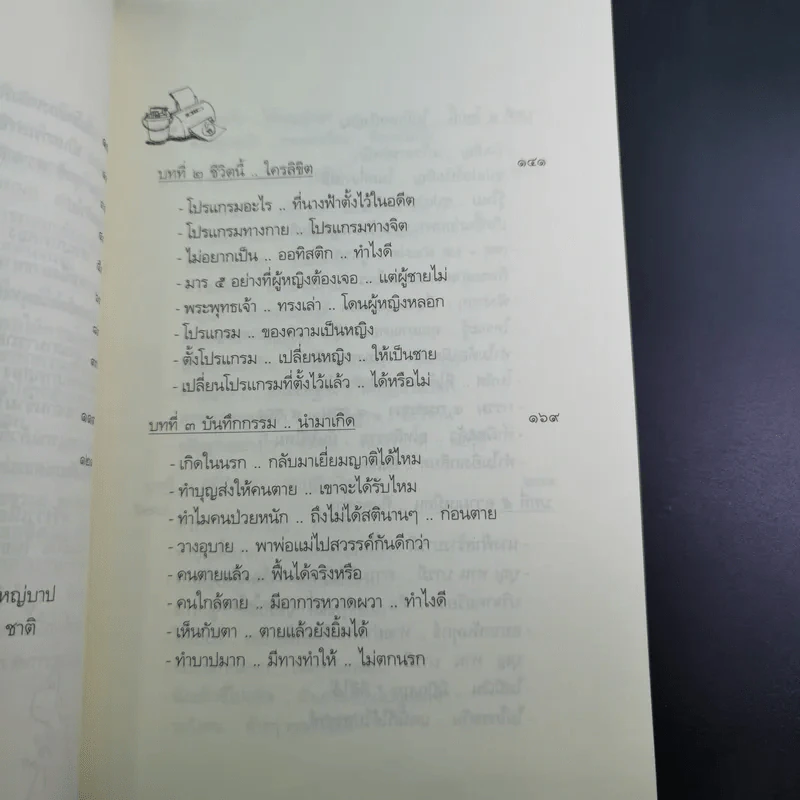 บทที่ ๒ ชีวิตนี้ .. ใครลิขิต ๑๔๑
- โปรแกรมอะไร .. ที่นางฟ้าตั้งไว้ในอดีต
- โปรแกรมทางกาย .. โปรแกรมทางจิต
- ไม่อยากเป็น .. ออทิสติก .. ทำไงดี
- มาร ๕ อย่างที่ผู้หญิงต้องเจอ .. แต่ผู้ชายไม่
- พระพุทธเจ้า .. ทรงเล่า .. โดนผู้หญิงหลอก
- โปรแกรม .. ของความเป็นหญิง
- ตั้งโปรแกรม .. เปลี่ยนหญิง .. ให้เป็นชาย
- เปลี่ยนโปรแกรมที่ตั้งไว้แล้ว .. ได้หรือไม่
บทที่ ๓ บันทึกกรรม .. นำมาเกิด ๑๖๙
- เกิดในนรก .. กลับมาเยี่ยมญาติได้ไหม
- ทำบุญส่งให้คนตาย .. เขาจะได้รับไหม
- ทำไมคนป่วยหนัก .. ถึงไม่ได้สตินานๆ .. ก่อนตาย
- วางอุบาย .. พาพ่อแม่ไปสวรรค์กันดีกว่า
- คนตายแล้ว .. ฟื้นได้จริงหรือ
- คนใกล้ตาย .. มีอาการหวาดผวา .. ทำไงดี
- เห็นกับตา .. ตายแล้วยังยิ้มได้
- ทำบาปมาก .. มีทางทำให้ .. ไม่ตกนรก
ชาติ